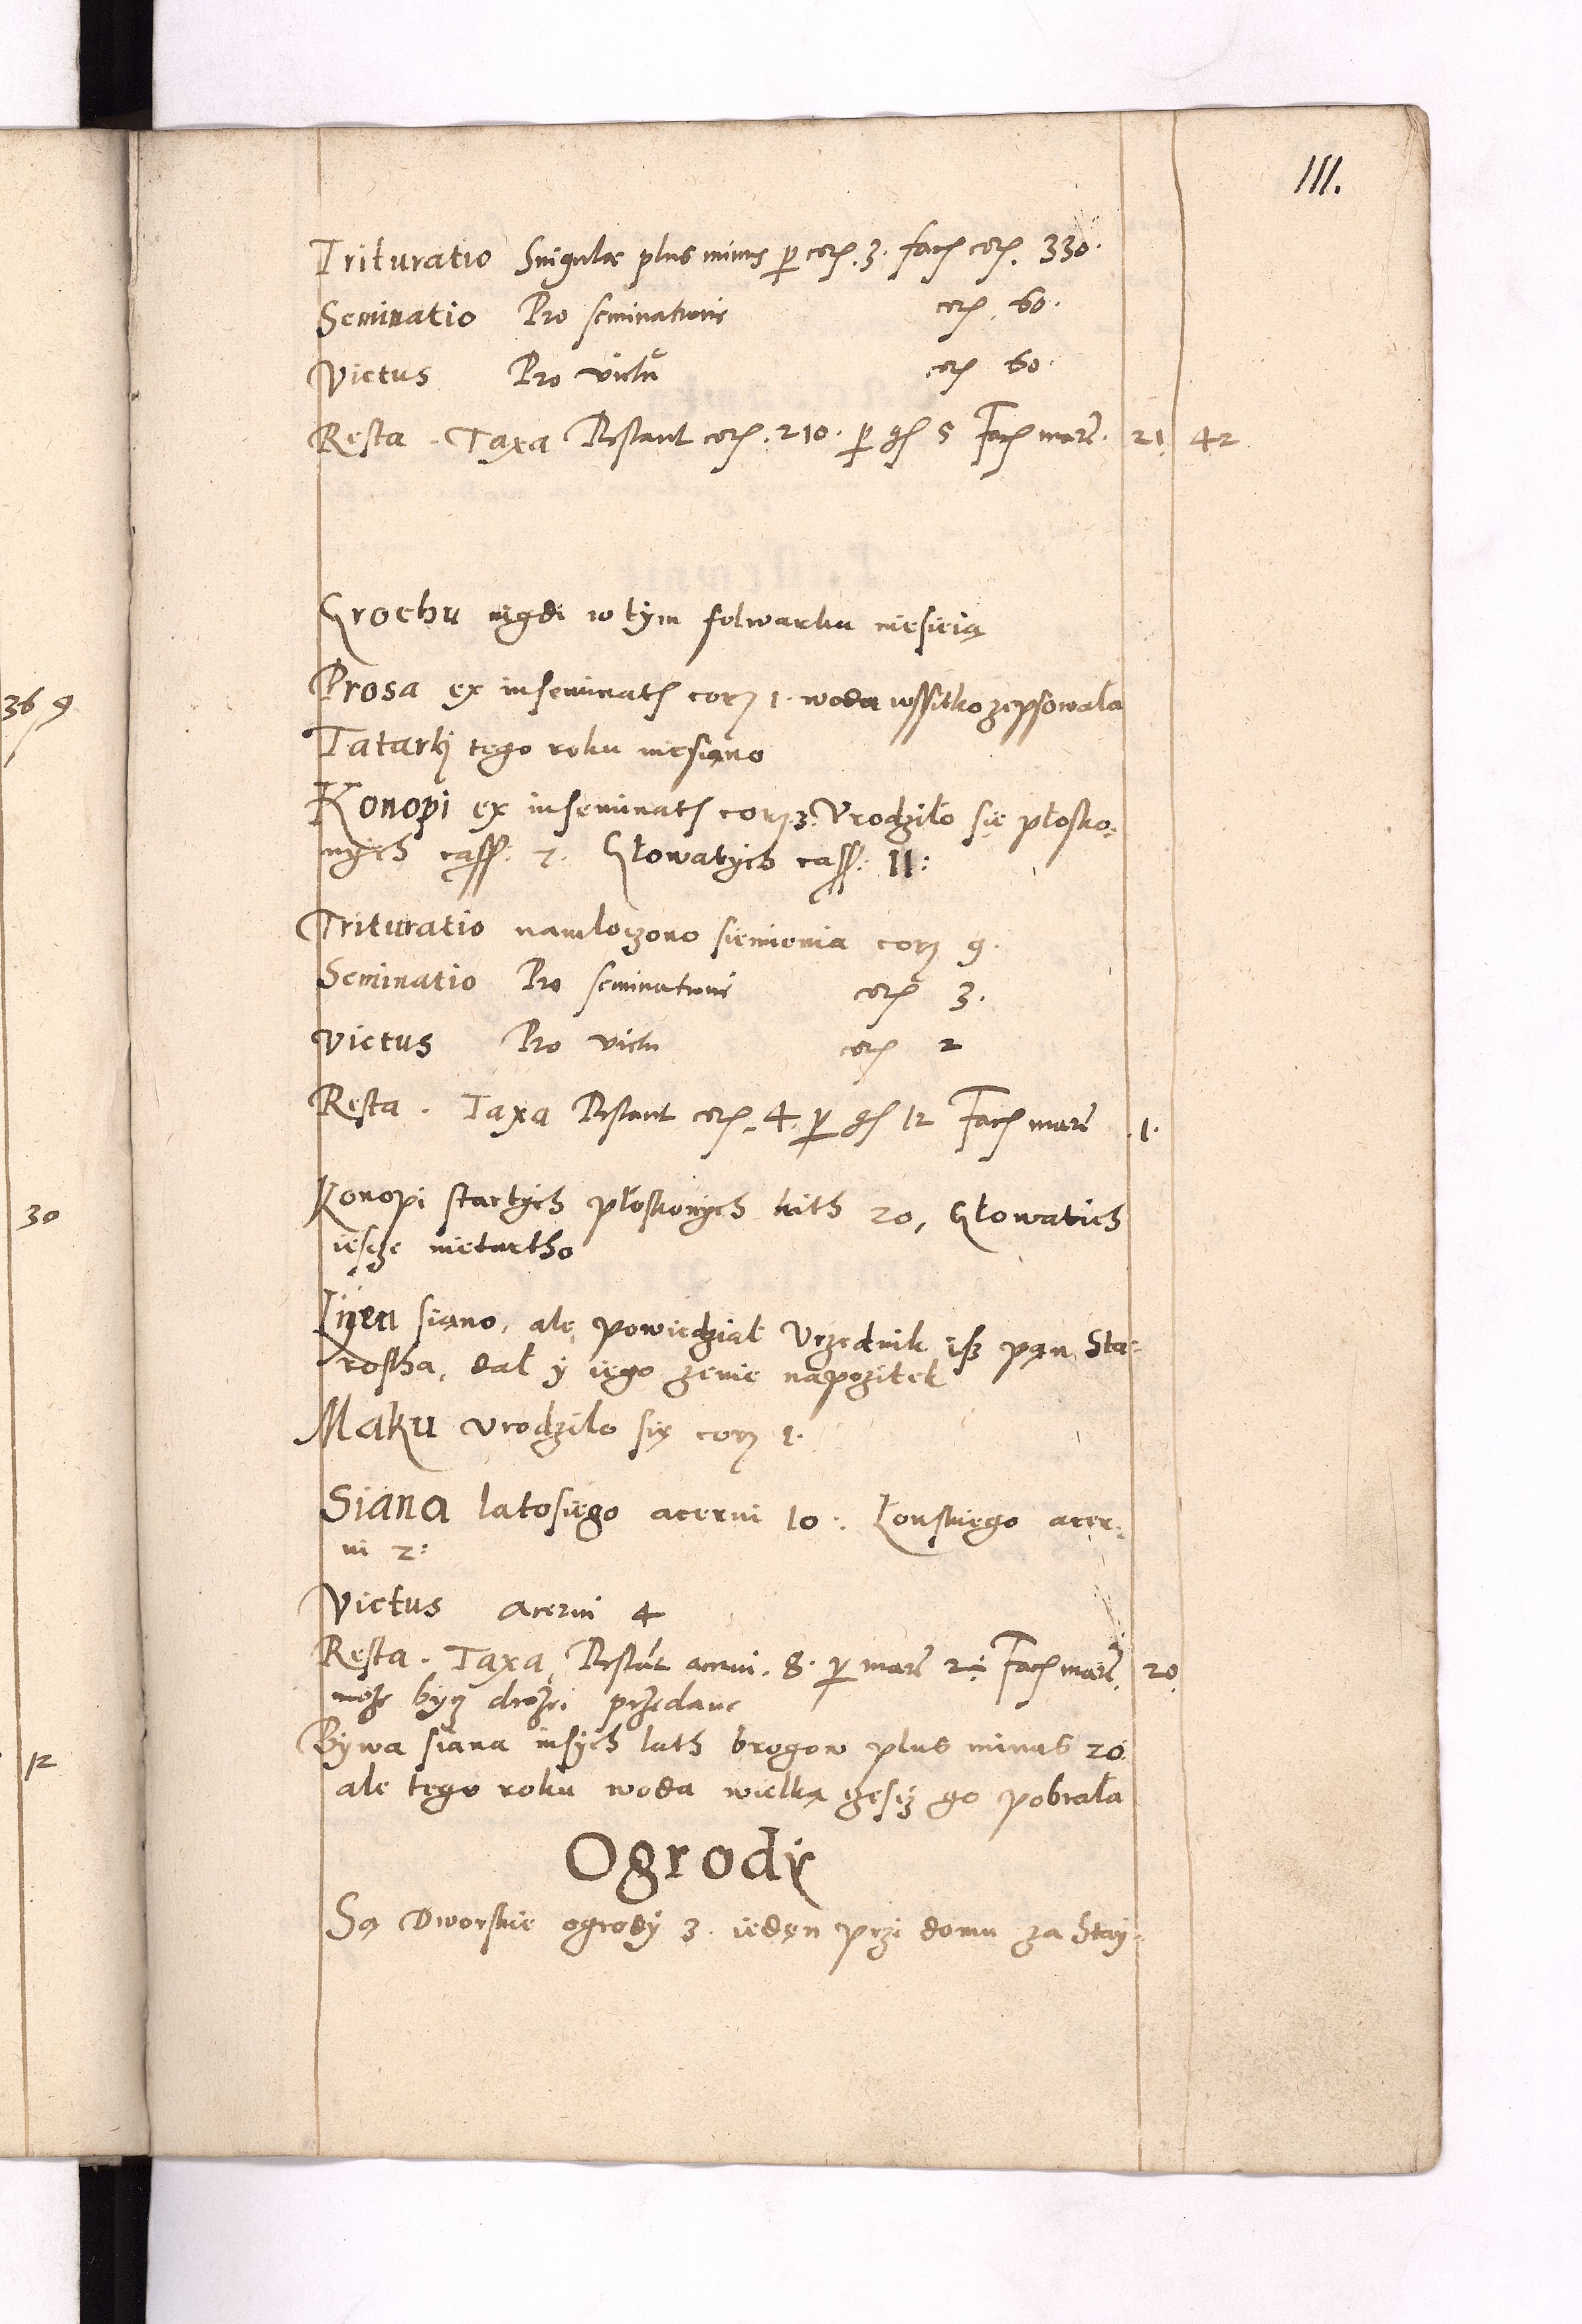 111.
Trituratio Singulae plus minus per corz. 3. facz corz. 330.
Seminatio Pro seminationis corz. 60.
Victus Pro victu corz 60.
Resta . Taxa Restant corz. 210. per gsz 5 Facz marc. 21 42
Grochu nigdi w tym folwarku niesieią
Prosa ex inseminatz corz 1. woda wssitko zepsowala
Tatarkj tego roku niesiano
Konopi ex inseminatz corz 3. Vrodzilo się płosko=
nych cass. 7. Głowatych cass: 11:
Trituratio namłoczono siemienia corz 9.
Seminatio Pro seminationis corz 3.
Victus Pro victu corz 2
Resta . Taxa Restant corz. 4. per gsz 12 Facz marc .1.
Konopi startych płoskonych kith 20, Głowatich
iescze nietartho
Lnẏu siano, ale powiedział Vrzednik isz pan Sta=
rostha, dał y iego zenie napozitek
Maku vrodzilo się corz 1.
Siana latosiego acerui 10: Łonskiego acer=
ui 2:
Victus Acerui 4
Resta . Taxa Restant acerui. 8. per marc 2½ Facz marc. 20
może bycz drożei przedane
Bywa siana inszych lath brogow plus minus 20
ale tego roku woda wielka gesiz go pobrala
Ogrody
Są Dworskie ogrody 3. ieden przi domu za Stay=
36 9
30
12